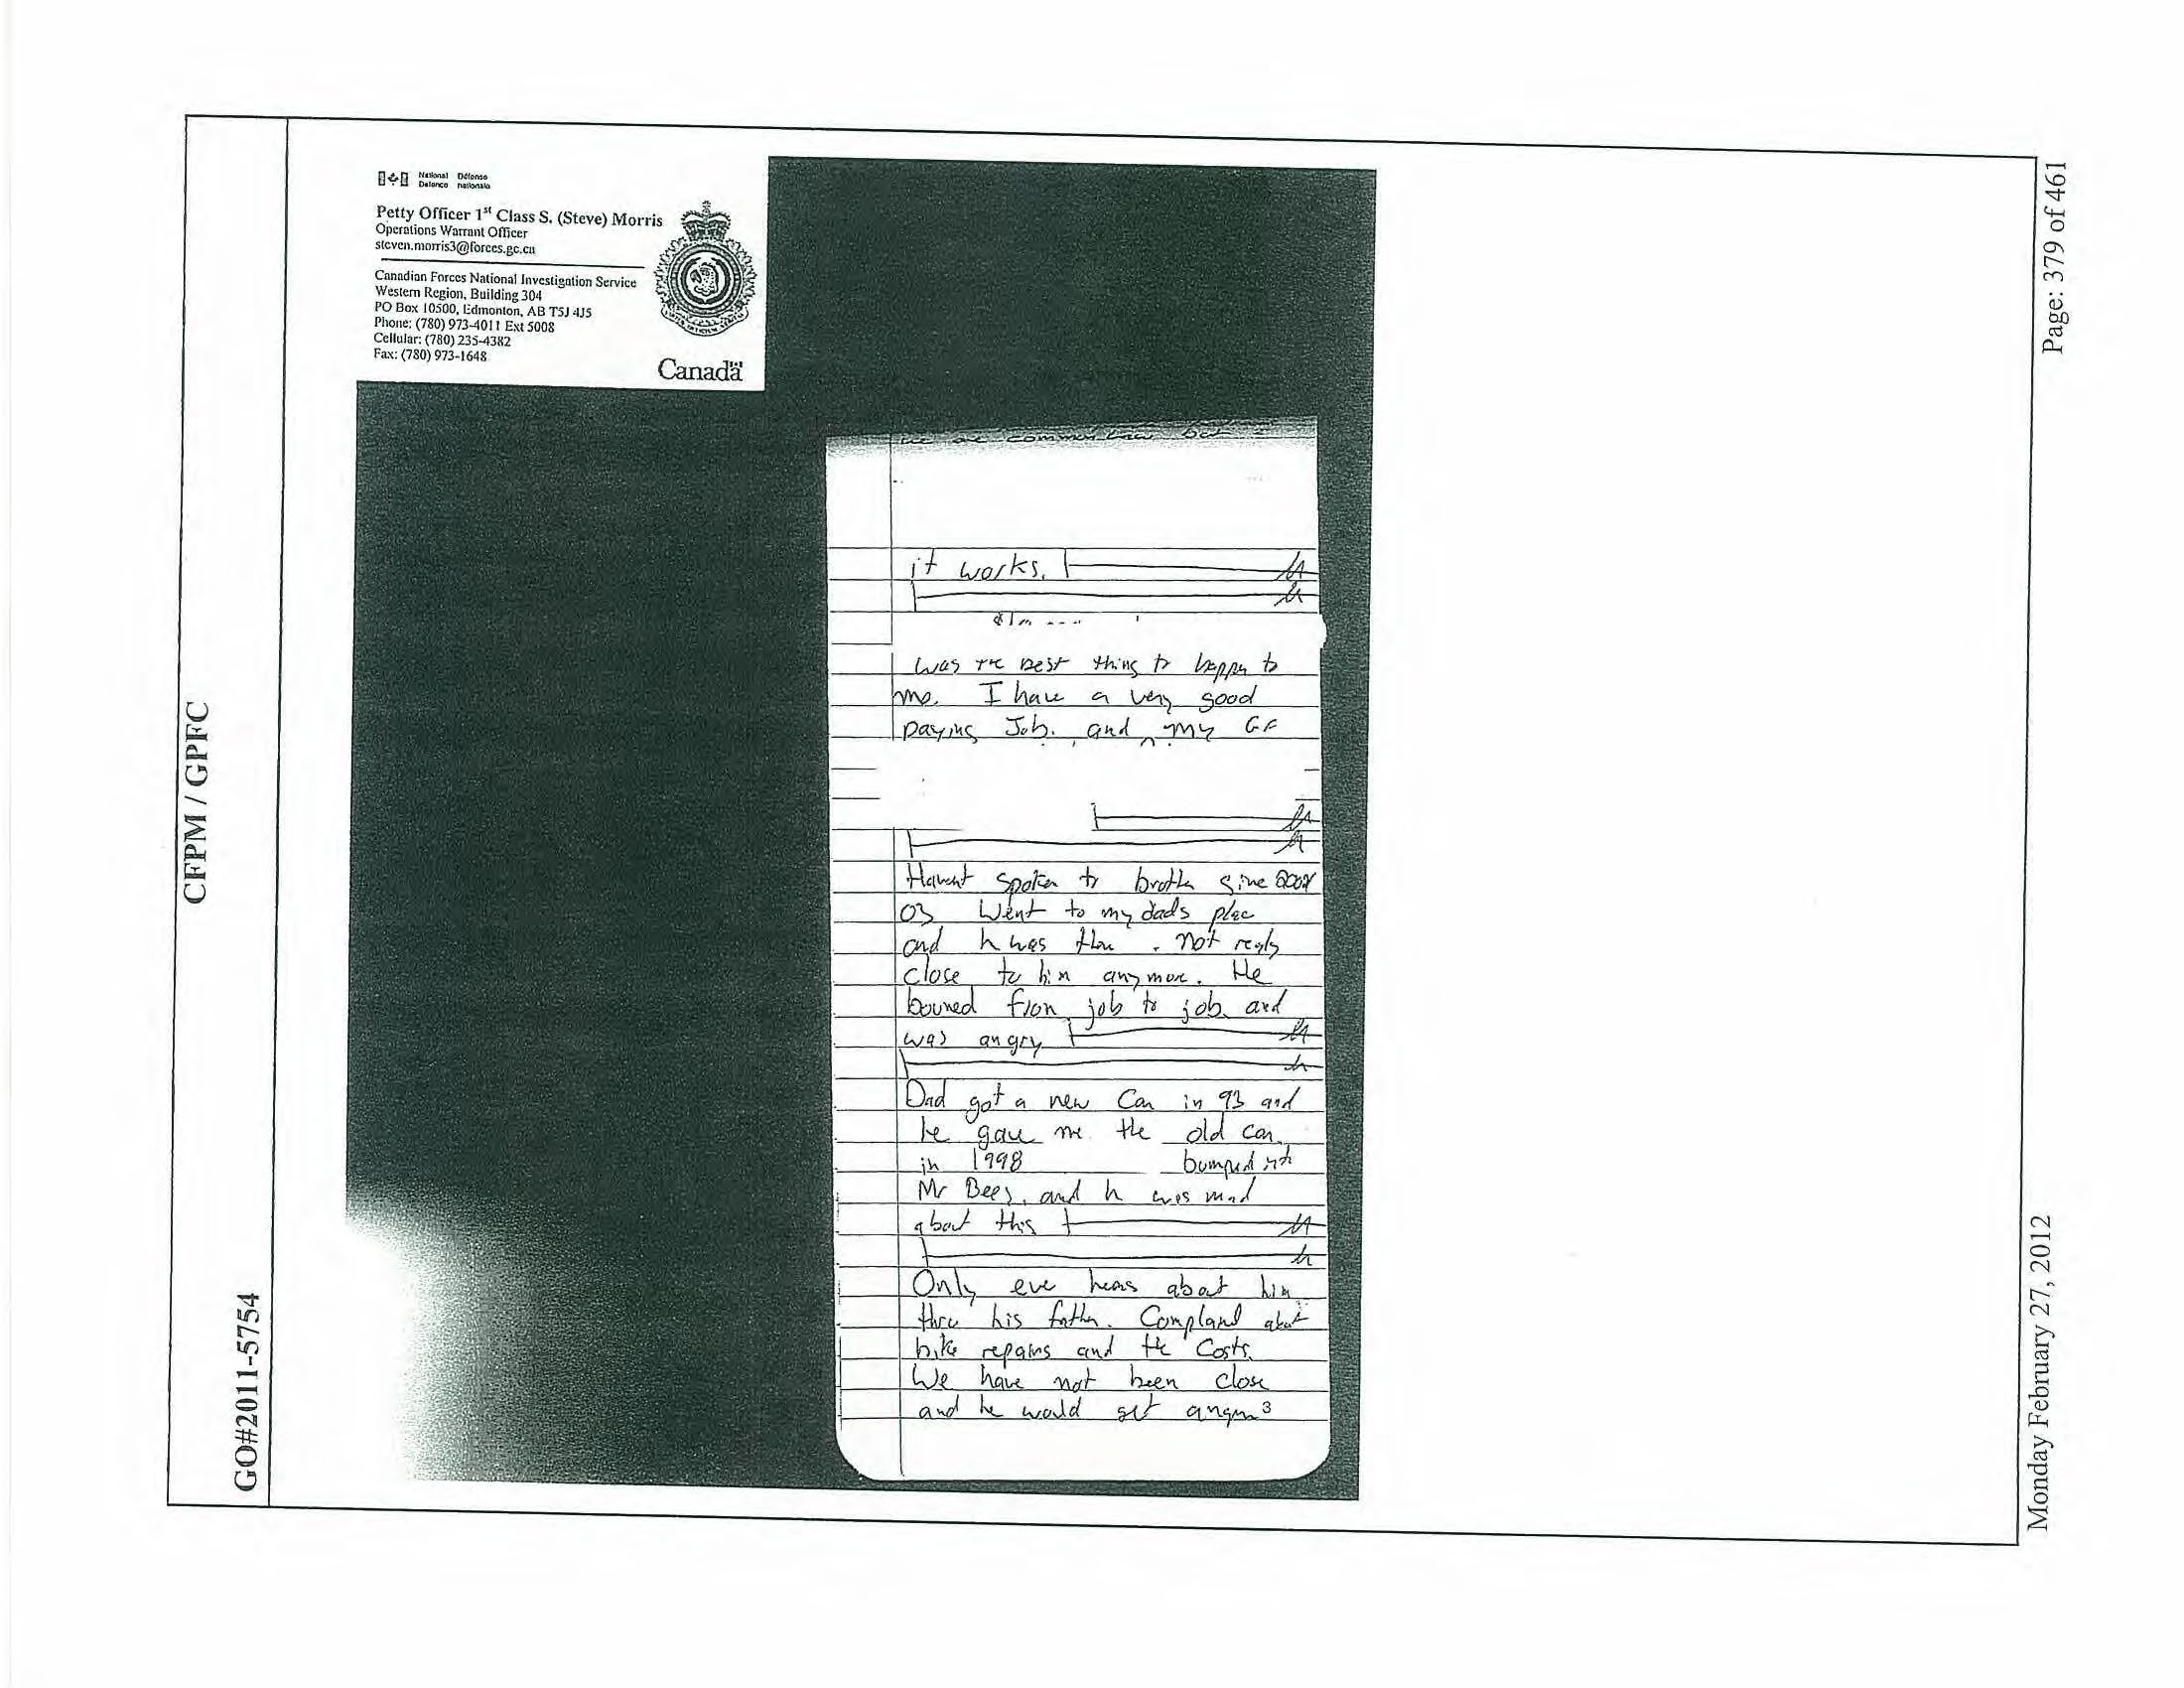 CFPM / GPFC
GO#2011-5754
National Défense
Defence nationale
Petty Officer 1st Class S. (Steve) Morris
Operations Warrant Officer
steven.morris3@forces.gc.ca
Canadian Forces National Investigation Service
Western Region, Building 304
PO Box 10500, Edmonton, AB T5J 4J5
Phone: (780) 973-4011 Ext 5008
Cellular: (780) 235-4382
Fax: (780) 973-1648
Canada
common law but I
it works.
was the best thing to happen to
me. I have a very good
paying Job. and my GF
Havent spoken to broth since
03 Went to my dads place
and h was there. not really
close to him anymore. He
bounced from job to job and
was angry
Dad got a new Car in 93 and
he gave me the old car
in 1998 bumped into
Mr Bees, and h was mad
about this
Only ever hears about him
thru his father. Complaind about
bike repairs and the Costs.
We have not been close
and he would get
3
Monday February 27, 2012
Page: 379 of 461